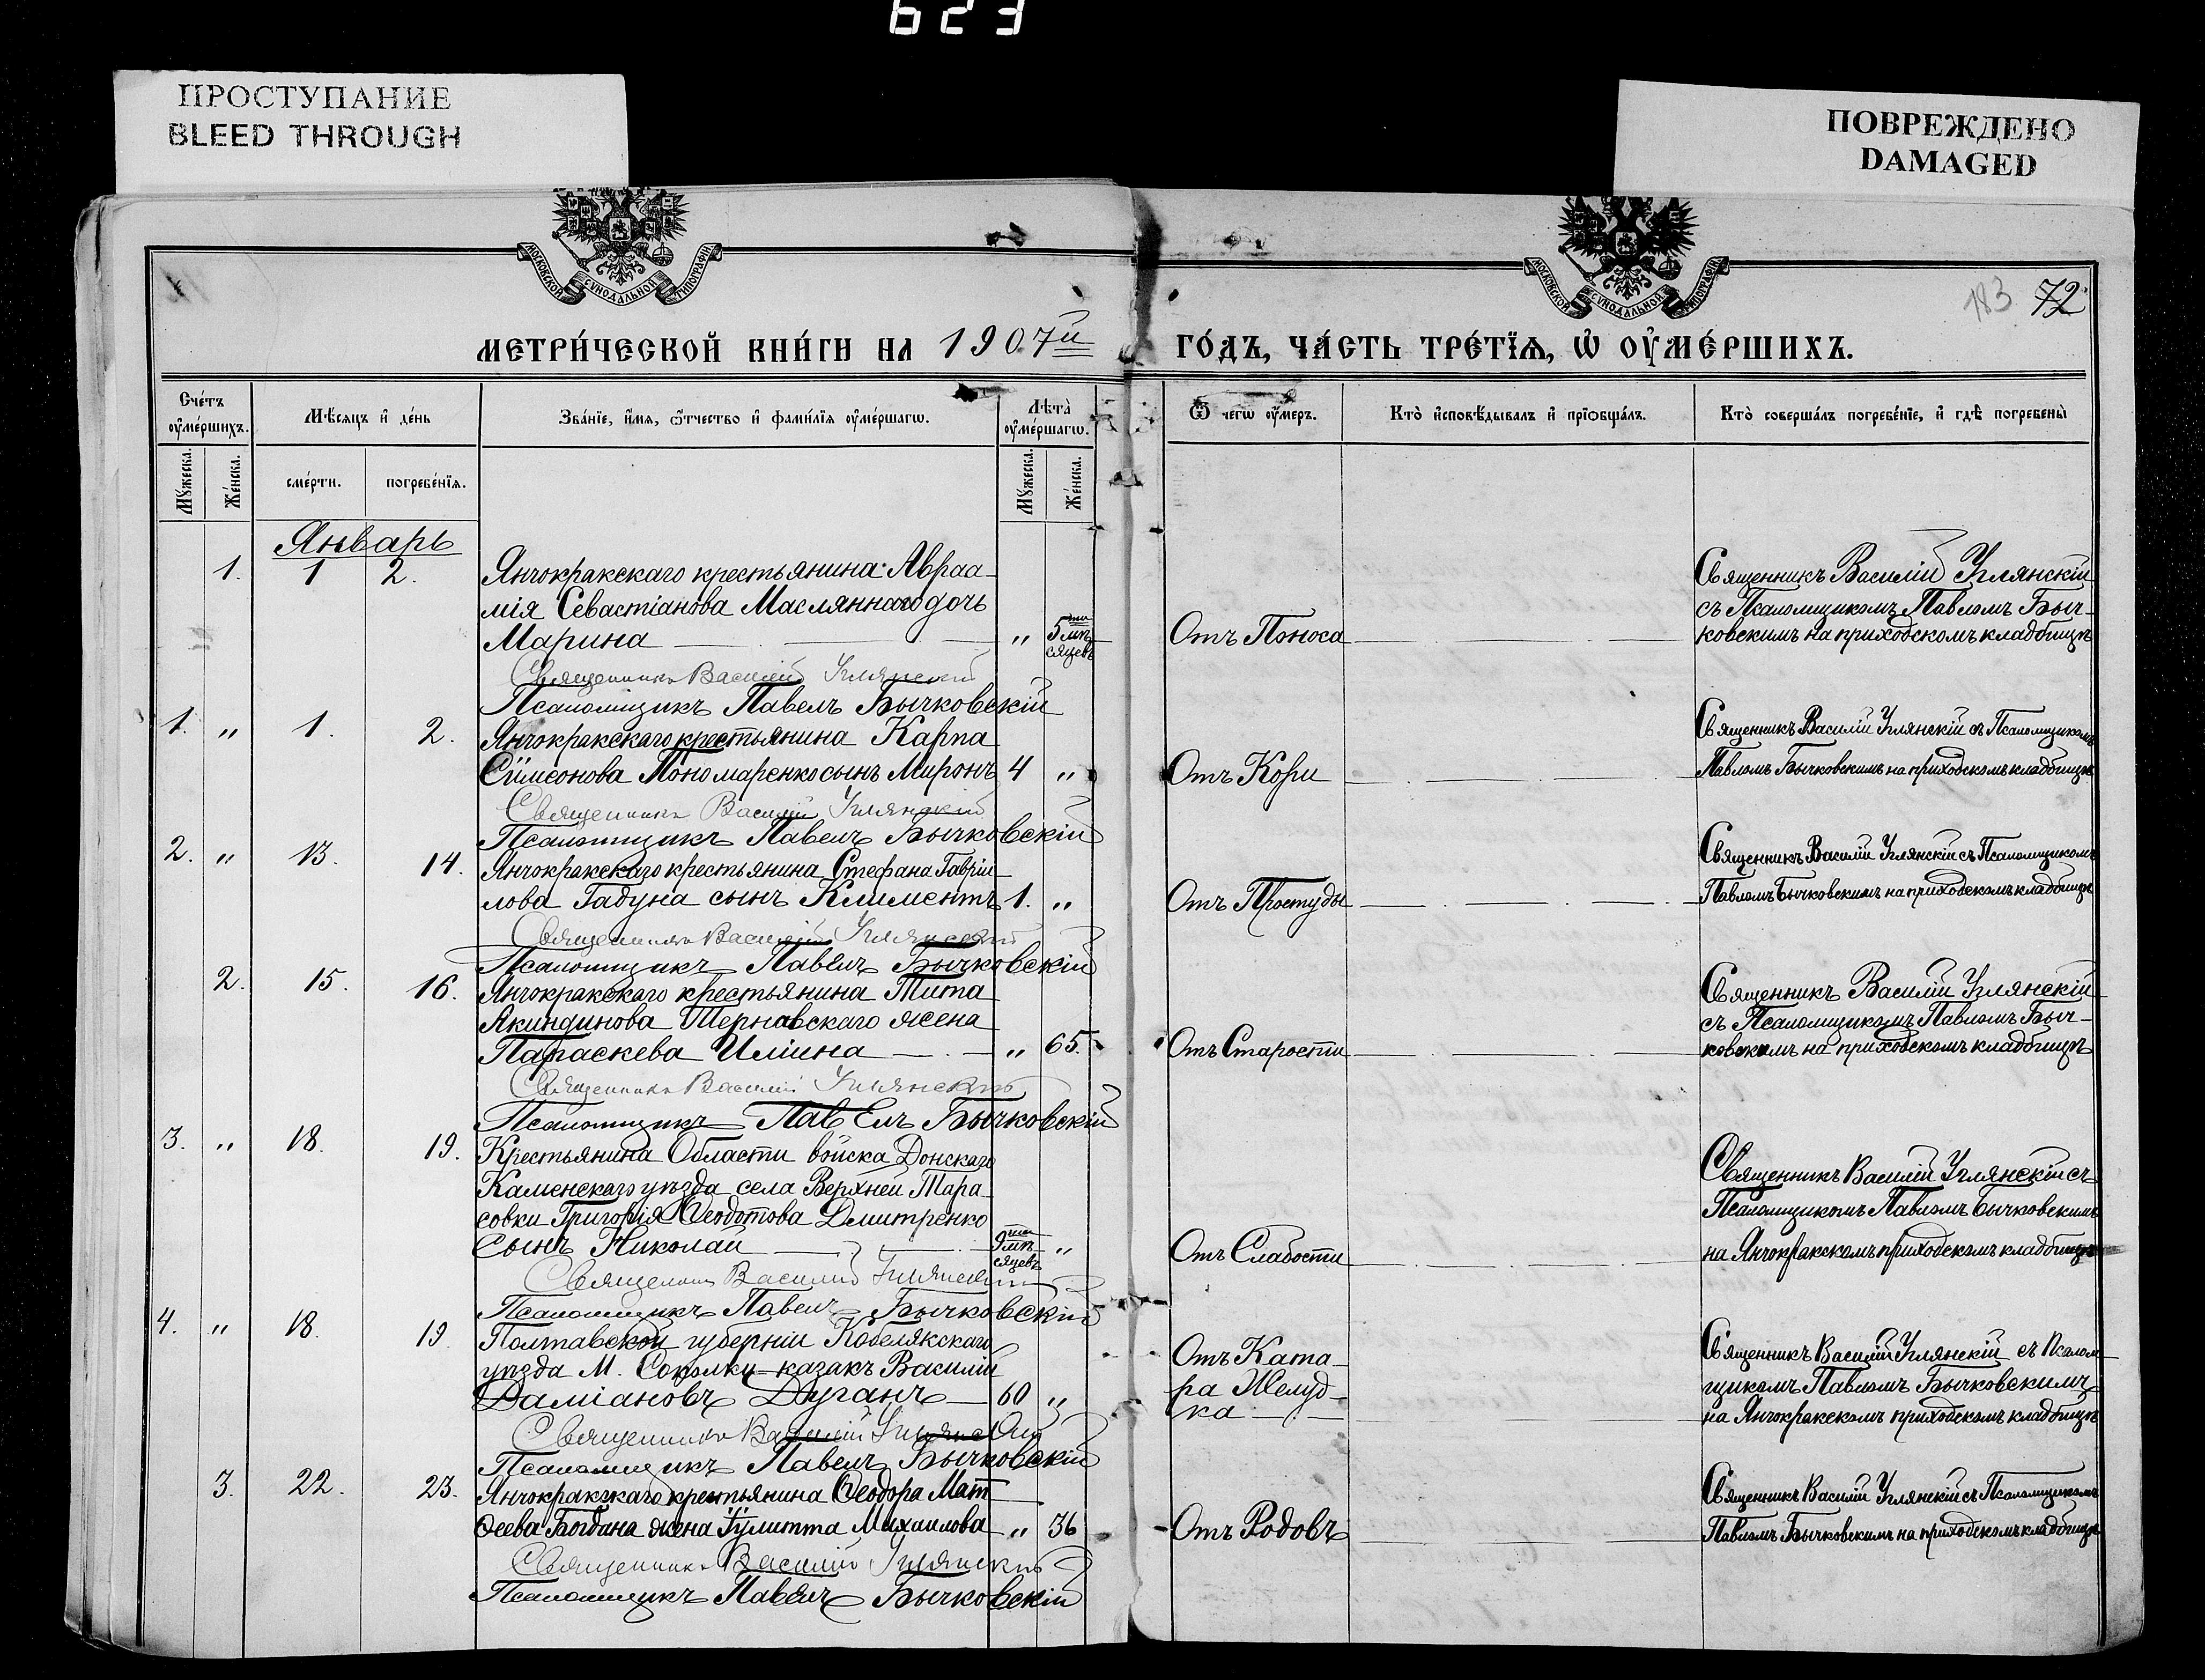 623
ПРОСТУПАНИЕ
BLEED THROUGH
ПОВРЕЖДЕНО
DAMAGED
МОСКОВСКОЙ СѴНОДАЛЬНОЙ ТИПОГРАФІИ
МОСКОВСКОЙ СѴНОДАЛЬНОЙ ТИПОГРАФІИ
183 72
МЕТРИ́ЧЕСКОЙ КНИ́ГИ НА 1907й ГО́ДЪ, ЧА́СТЬ ТРЕ́ТЇѦ, Ѡ҆ ОУ҆МЕ́РШИХЪ.
Сче́тъ оу҆ме́ршихъ.
Мѣ́сяцъ и҆ де́нь
Зва́нїе, и҆́мя, ѻ҆́тчество и҆ фами́лїя оу҆ме́ршагѡ.
Лѣ́та оу҆ме́ршагѡ.
Ѿ чегѡ̀ оу҆́меръ.
Кто̀ и҆сповѣ́дывалъ и҆ прїѡбща́лъ.
Кто̀ соверша́лъ погребе́нїе, и҆ гдѣ̀ погребены̀
Му́жеска.
Же́нска.
сме́рти.
погребе́нїя.
Му́жеска.
Же́нска.
Январь
1. 1 2. Янчокракскаго крестьянина Авраа-
мія Севастіанова Маслянного дочь
Марина " 5ти мѣ-
сяцевъ
Отъ Поноса
Священникъ Василій Углянскій
съ Псаломщикомъ Павломъ Быч-
ковскимъ на приходскомъ кладбищѣ
Священникъ Василій Углянскій
Псаломщикъ Павелъ Бычковскій
1. " 1. 2. Янчокракскаго крестьянина Карпа
Сѷмеонова Пономаренко сынъ Миронъ 4 "
Отъ Кори
Священникъ Василій Углянскій съ Псаломщикомъ
Павломъ Бычковскимъ на приходскомъ кладбищѣ
Священникъ Василій Углянскій
Псаломщикъ Павелъ Бычковскій
2. " 13. 14. Янчокракскаго крестьянина Стефана Гавріи-
лова Гадуна сынъ Климентъ 1. "
Отъ Простуды
Священникъ Василій Углянскій съ Псаломщикомъ
Павломъ Бычковскимъ на приходскомъ кладбищѣ
Священникъ Василій Углянскій
Псаломщикъ Павелъ Бычковскій
2. 15. 16. Янчокракскаго крестьянина Тита
Акиндинова Тернавскаго жена
Параскева Иліина " 65.
Отъ Старости
Священникъ Василій Углянскій
съ Псаломщикомъ Павломъ Быч-
ковскимъ на приходскомъ кладбищѣ
Священникъ Василій Углянскій
Псаломщикъ Павелъ Бычковскій
3. " 18. 19. Крестьянина Области войска Донскаго
Каменскаго уѣзда села Верхней Тара-
совки Григорія Ѳеодотова Дмитренко
сынъ Николай 9ти мѣ-
сяцевъ "
Отъ Слабости
Священникъ Василій Углянскій съ
Псаломщикомъ Павломъ Бычковскимъ
на Янчокракскомъ приходскомъ кладбищѣ
Священникъ Василій Углянскій
Псаломщикъ Павелъ Бычковскій
4. " 18. 19 Полтавской губерніи Кобелякскаго
уѣзда М. Соколки казакъ Василій
Даміановъ Дуганъ 60 "
Отъ Ката-
ра Желуд-
ка
Священникъ Василій Углянскій съ Псалом-
щикомъ Павломъ Бычковскимъ
на Янчокракскомъ приходскомъ кладбищѣ
Священникъ Василій Углянскій
Псаломщикъ Павелъ Бычковскій
3. 22. 23. Янчокракскаго крестьянина Ѳеодора Мат-
ѳеева Богдана жена Іулитта Михаилова " 36
Отъ Родовъ
Священникъ Василій Углянскій съ Псаломщикомъ
Павломъ Бычковскимъ на приходскомъ кладбищѣ
Священникъ Василій Углянскій
Псаломщикъ Павелъ Бычковскій